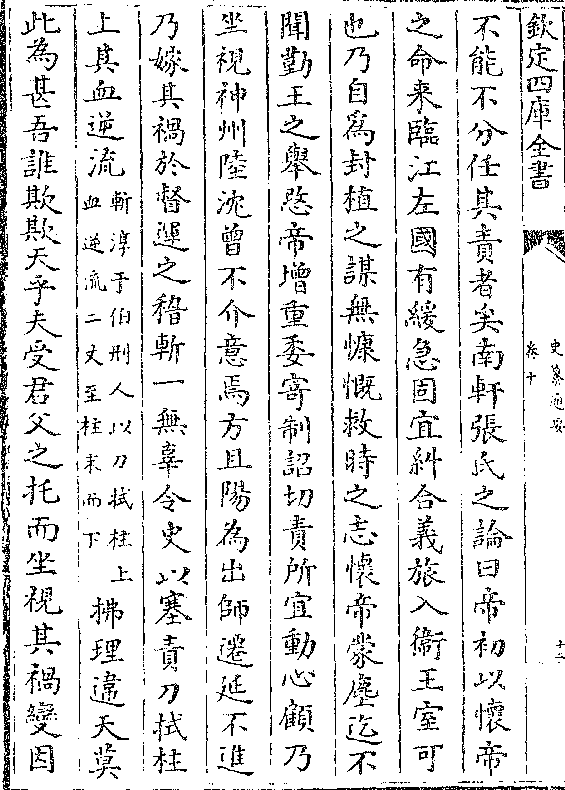 欽定四庫全書
史纂通要
卷十
十二
不能不分任其責者矣南軒張氏之論曰帝初以懷帝
之命来臨江左國有緩急固宜糾合義旅入衞王室可
也乃自為封植之謀無慷慨救時之志懷帝蒙塵迄不
聞勤王之舉愍帝增重委寄制詔切責所宜動心顧乃
坐視神州陸沈曾不介意焉方且陽為出師遷延不進
乃嫁其禍於督運之稽斬一無辜令史以塞責刀拭柱
上其血逆流斬淳于伯刑人以刀拭柱上血逆流二丈至柱末而下拂理違天莫
此為甚吾誰欺欺天乎夫受君父之托而坐視其禍變因